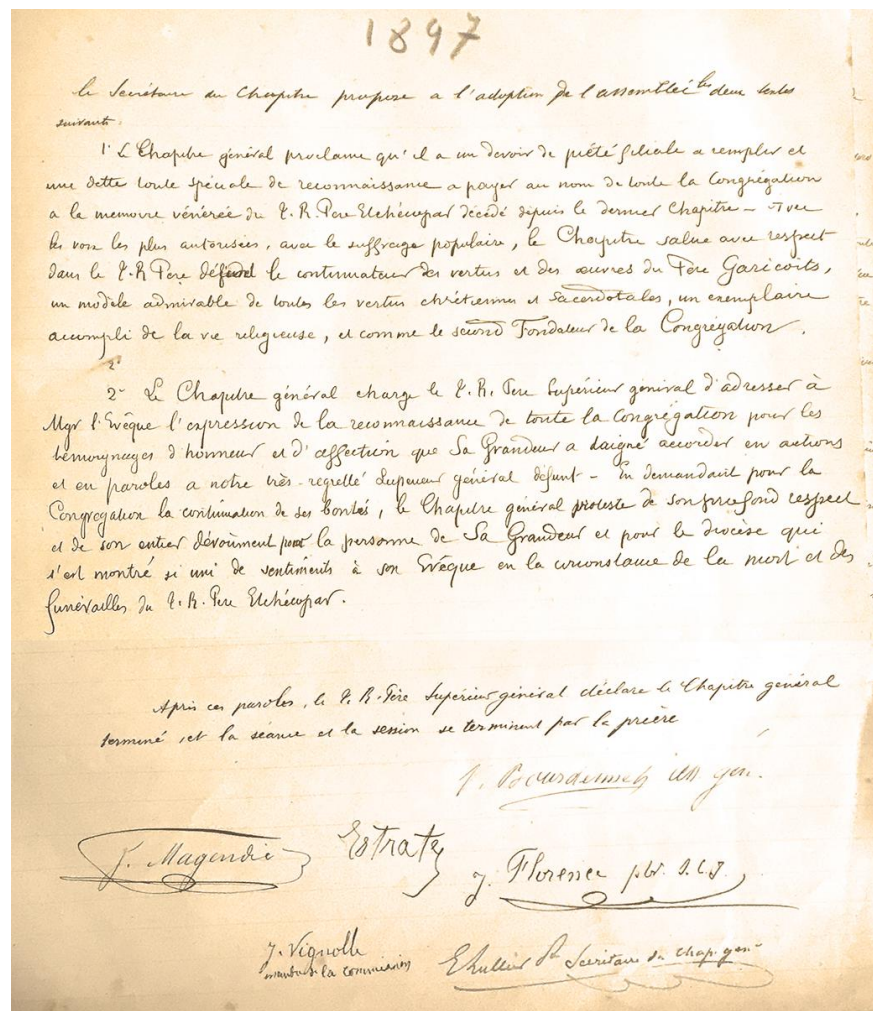 1897
le Secrétaire du Chapitre propose a l'adoption de l'assemblée les deux textes
suivants.
1º Le Chapitre général proclame qu'il a un devoir de piété filiale a remplir et
une dette toute spéciale de reconnaissance a payer au nom de toute la Congrégation
a la memoire vénérée du T. R. Pere Etchécopar décédé depuis le dernier Chapitre — Avec
les voix les plus autorisées, avec le suffrage populaire, le Chapitre salue avec respect
dans le T. R Pere défunt le continuateur des vertus et des œuvres du Père Garicoïts,
un modèle admirable de toutes les vertus chrétiennes et Sacerdotales, un exemplaire
accompli de la vie religieuse, et comme le second Fondateur de la Congrégation.
2º
2º Le Chapitre général charge le T. R. Pere Supérieur général d'adresser à
Mgr l'Evêque l'expression de la reconnaissance de toute la Congrégation pour les
témoignages d'honneur et d'affection que Sa Grandeur a daigné accorder en actions
et en paroles a notre très-regretté Supérieur général défunt — En demandant pour la
Congrégation la continuation de ses bontés, le Chapitre général proteste de son profond respect
et de son entier dévoûment pour la personne de Sa Grandeur et pour le diocèse qui
s'est montré si uni de sentiments à son Evêque en la circonstance de la mort et des
funérailles du T. R. Pere Etchécopar.
Après ces paroles, le T. R. Père Supérieur général déclare le Chapitre général
terminé, et la séance et la session se terminent par la prière
gén.
Magendie
Estrate
J. Florence pbr. S.C.J.
J. Vignolle
membre de la commission
Secrétaire du Chap. gen